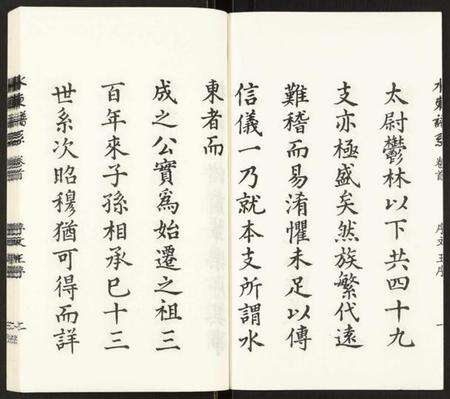 太尉鬱林以下共四十九
支亦極盛矣然族繁代遠
難稽而易淆懼未足以傳
信儀一乃就本支所謂水
東者而
成之公實爲始遷之祖三
百年來子孫相承已十三
世系次昭穆猶可得而詳